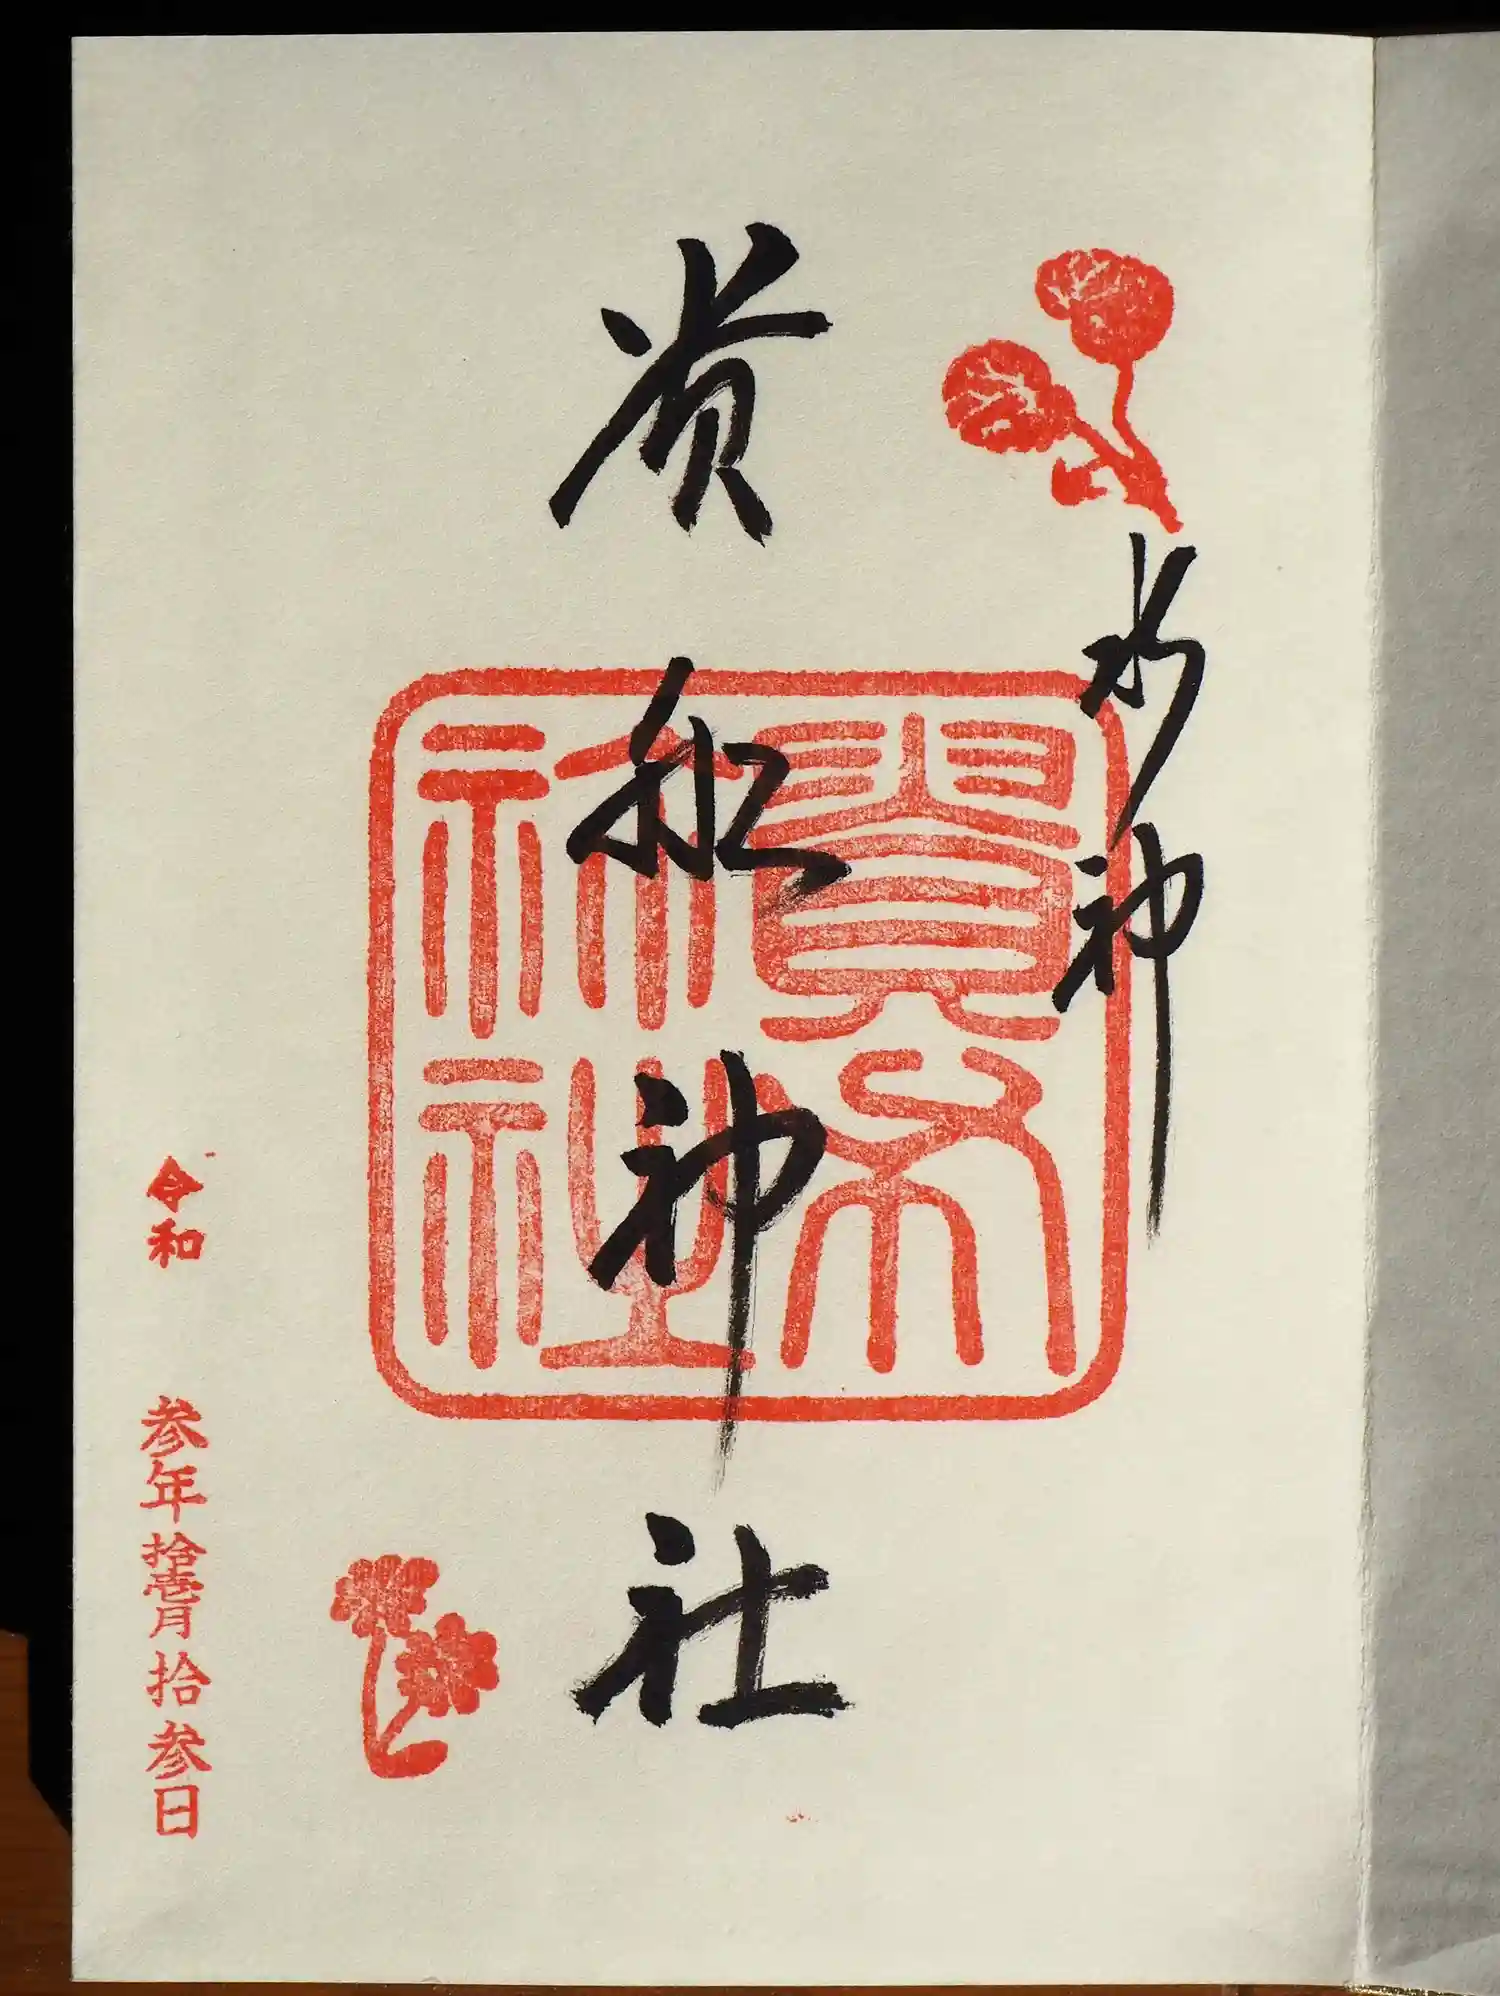 水神
貴船神社
貴布
祢社
令和 参年拾壱月拾参日